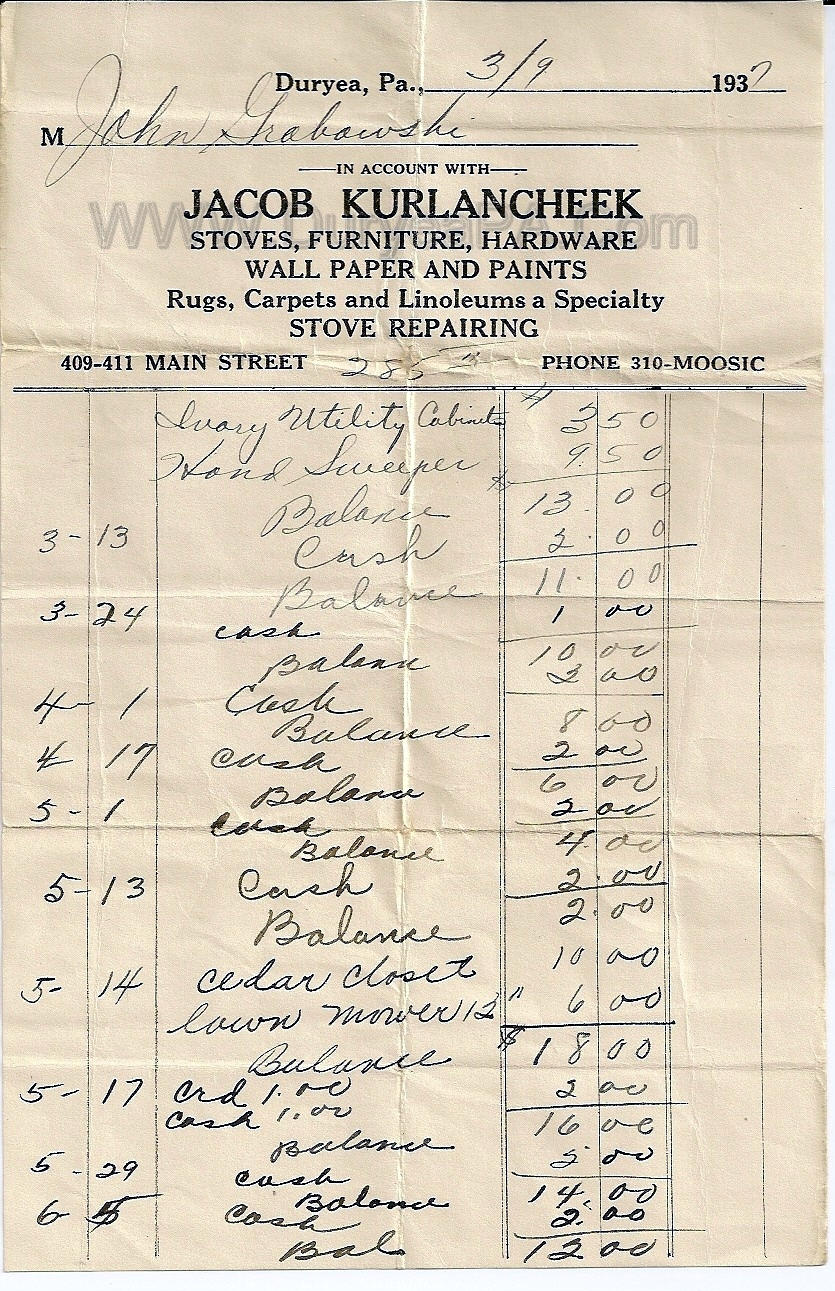 Duryea, Pa., 3/9 1937
M John Grabowski
IN ACCOUNT WITH
JACOB KURLANCHEEK
www.DuryeaPA.com
STOVES, FURNITURE, HARDWARE
WALL PAPER AND PAINTS
Rugs, Carpets and Linoleums a Specialty
STOVE REPAIRING
409-411 MAIN STREET 285 PHONE 310-MOOSIC
Ivory Utility Cabinet $ 3 50
Hand Sweeper 9.50
Balance $ 13.00
3-13 Cash 2.00
Balance 11.00
3-24 cash 1 00
Balance 10 00
4-1 Cash 2 00
Balance 8 00
4 17 cash 2 00
Balance 6 00
5-1 cash 2 00
Balance 4 00
5-13 Cash 2.00
Balance 2.00
5-14 cedar closet 10 00
lawn mower 12" 6 00
Balance $ 18 00
5-17 Crd 1.00 2 00
cash 1.00
Balance 16 00
5-29 cash 2 00
Balance 14.00
6-5 Cash 2.00
Bal 12 00